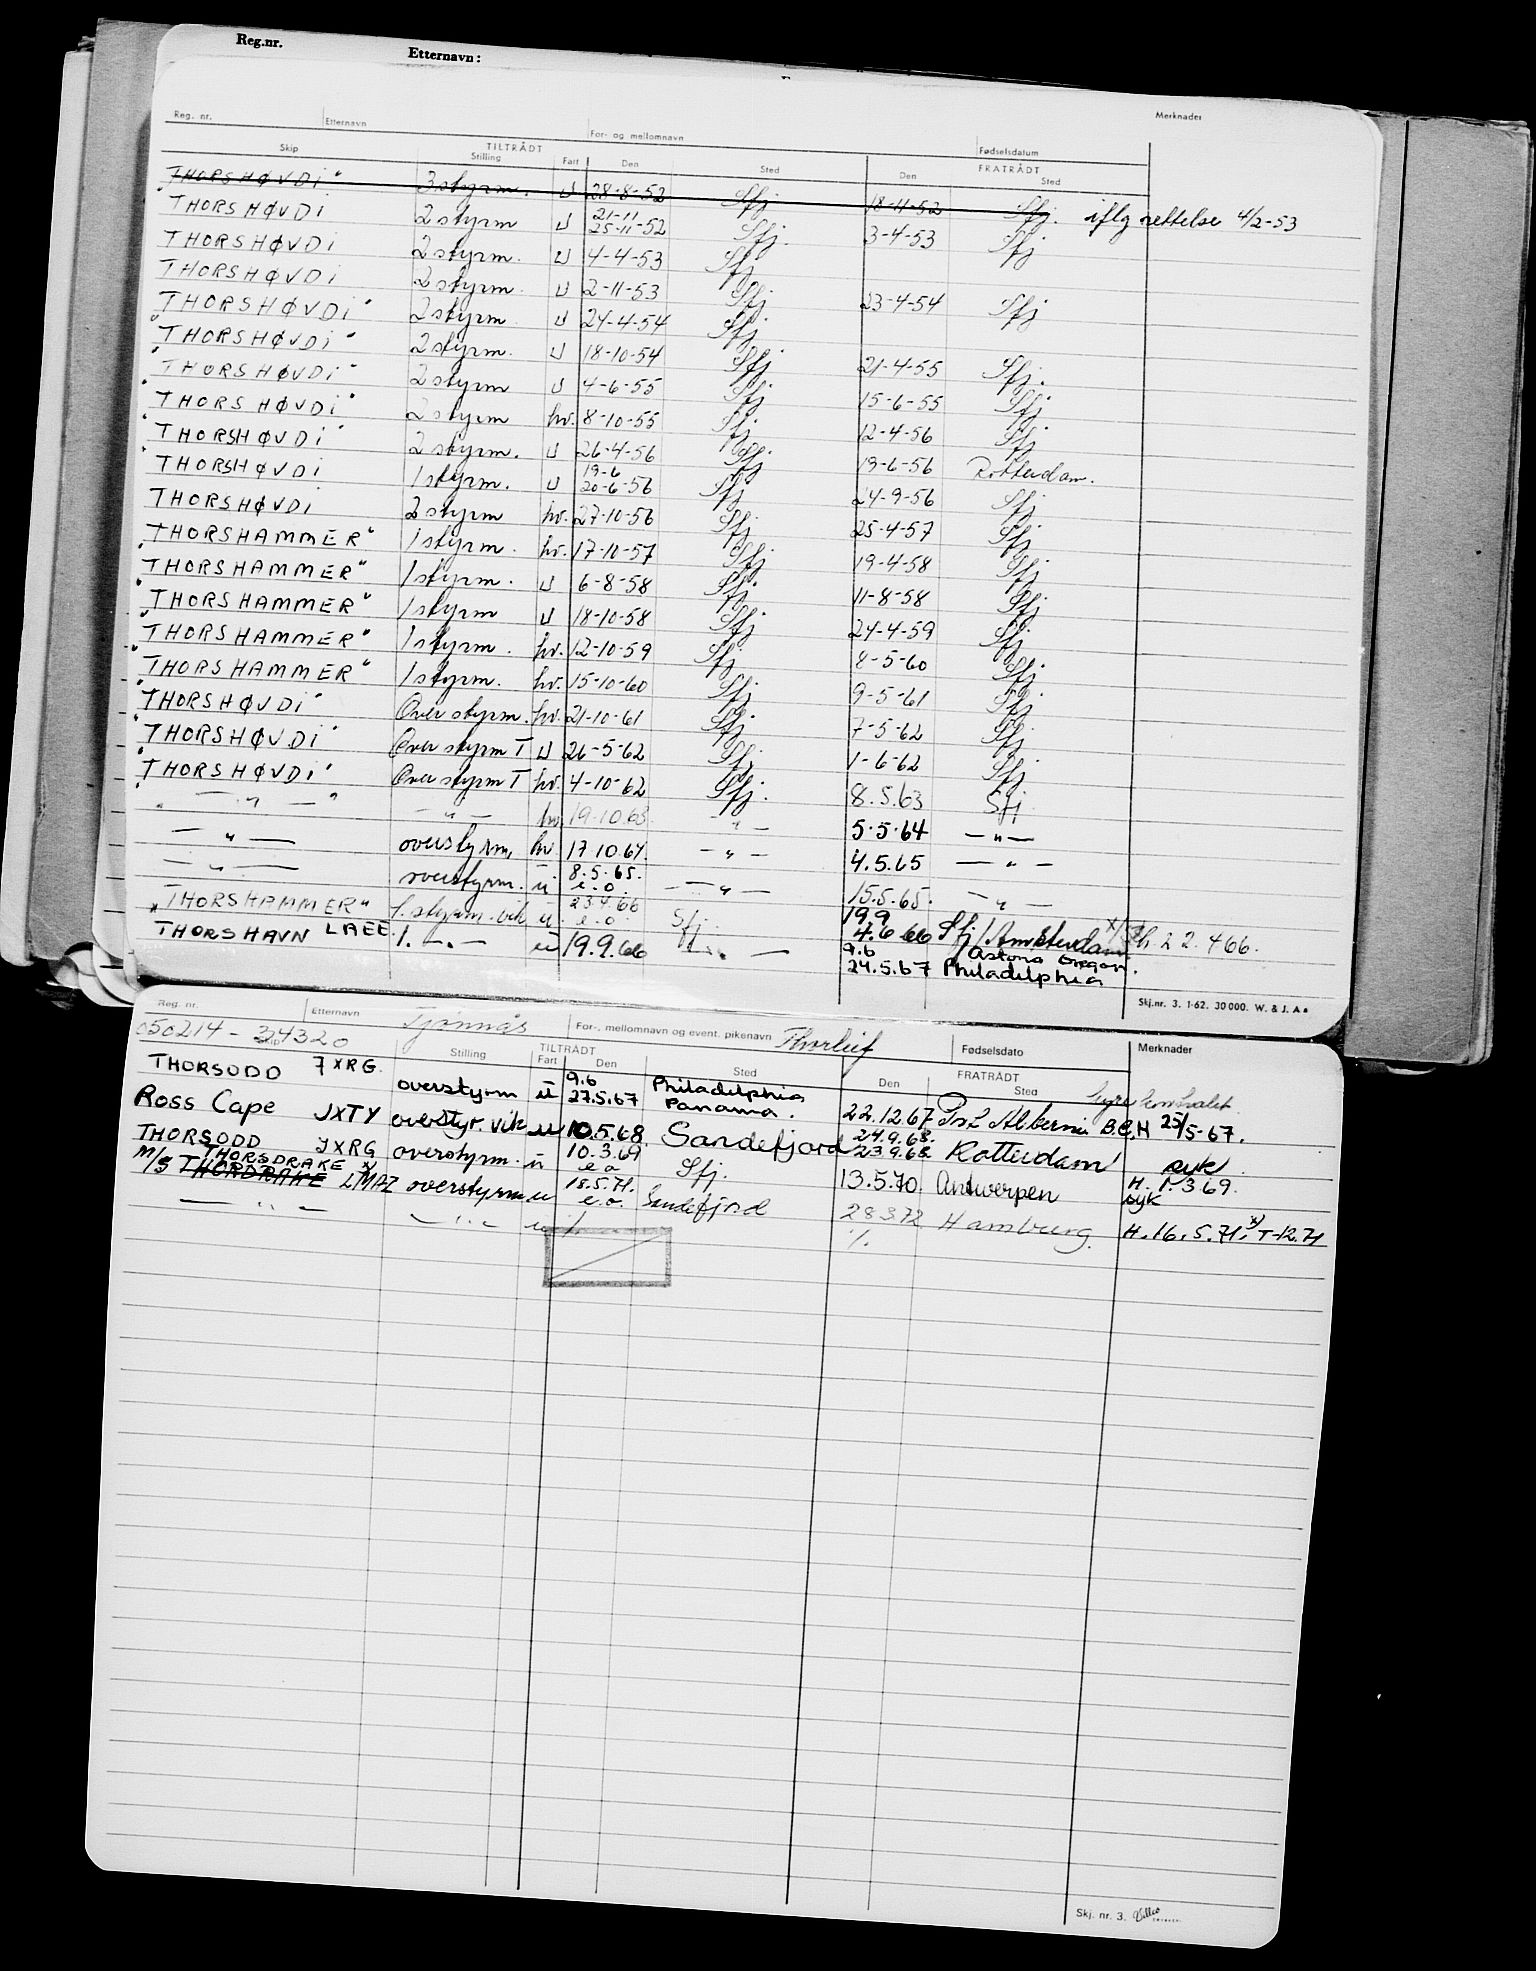 Reg.nr. Etternavn:
Reg. nr. Etternavn For- og mellomnavn Fødselsdatum Merknader
Skip TILTRÅDT Stilling Fart Den Sted FRATRÅDT Den Sted
"THORSHØVDi" 3 styrm. U 28-8-52 Sfj 18-11-52 Sfj. iflg rettelse 4/2-53
THORSHØVDi 2 styrm U 21-11 25-11-52 Sfj. 3-4-53 Sfj
THORSHØVDi 2 styrm. U 4-4-53 Sfj
THORSHØVDi 2 styrm. U 2-11-53 Sfj 23-4-54 Sfj
"THORSHØVDi" 2 styrm U 24-4-54 Sfj
"THORSHØVDi" 2 styrm. U 18-10-54 Sfj 21-4-55 Sfj.
"THORSHØVDi" 2 styrm U 4-6-55 Sfj 15-6-55 Sfj
"THORSHØVDi" 2 styrm hv. 8-10-55 Sfj 12-4-56 Sfj
"THORSHØVDi" 2 styrm. U 26-4-56 Sfj 19-6-56 Rotterdam.
THORSHØVDi 1 styrm. U 19-6 20-6-56 Sfj 24-9-56 Sfj
THORSHØVDi 2 styrm hv. 27-10-56 Sfj 25-4-57 Sfj
"THORSHAMMER" 1 styrm. hv. 17-10-57 Sfj 19-4-58 Sfj
"THORSHAMMER" 1 styrm. U 6-8-58 Sfj 11-8-58 Sfj
"THORSHAMMER" 1 styrm U 18-10-58 Sfj 24-4-59 Sfj
"THORSHAMMER" 1 styrm. hv. 12-10-59 Sfj 8-5-60 Sfj
"THORSHAMMER" 1 styrm. hv. 15-10-60 Sfj 9-5-61 Sfj
"THORSHØVDi" Over styrm. hv. 21-10-61 Sfj 7-5-62 Sfj
"THORSHØVDi" Over styrm T U 26-5-62 Sfj 1-6-62 Sfj
"THORSHØVDi" Over styrm T hv. 4-10-62 Sfj. 8.5.63 Sfj
" — " — " — " — hv. 19.10.63. — " — 5.5.64 — " —
— " — overstyrm, hv 17 10.64. — " — 4.5.65 — " —
— " — overstyrm. u. 8.5.65. e.o. — " — 15.5.65. — " —
"THORSHAMMER" 1. styrm. vik u. 23.4.66 e.o. Sfj. 19.9 4.6 66 Sfj / Amsterdam x/ h. 22.466.
THORSHAVN LAEE 1. — . — u 19.9.66 — " — 9.6 24.5.67 Astoria Oregon. Philadelphia
Skj.nr. 3. 1-62. 30 000. W. & J. As
Reg. nr. Etternavn For-, mellomnavn og event. pikenavn Fødselsdato Merknader
050214-34320 Tjønnås Thorleif
Skip TILTRÅDT Stilling Fart Den Sted FRATRÅDT Den Sted
THORSODD JXRG. overstyrm u 9.6 27.5.67 Philadelphia Panama. 22.12.67 Alberni B.C. H 25/5-67.
Ross Cape JXTY overstyr. vik u 10.5.68. Sandefjord 24.9.68. 23.9.68 Rotterdam syk
THORSODD JXRG overstyrm. u 10.3.69 e o Sfj. 13.5.70 Antwerpen H. 1.3 69. syk
M/S THORSDRAKE x) THORDRAKE LMAZ overstyrm u 18.5.71. e.o. Sandefjord 28372 Hamburg. H. 16.5.71. x) T-12.71
— " — — " — u %. %.
Skj. nr. 3.